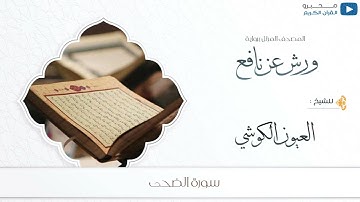 محبرو
القرآن الكريم
المصحف المرتل برواية
ورش عن نافع
للشيخ :
العيون الكوشي
سورة الضحى